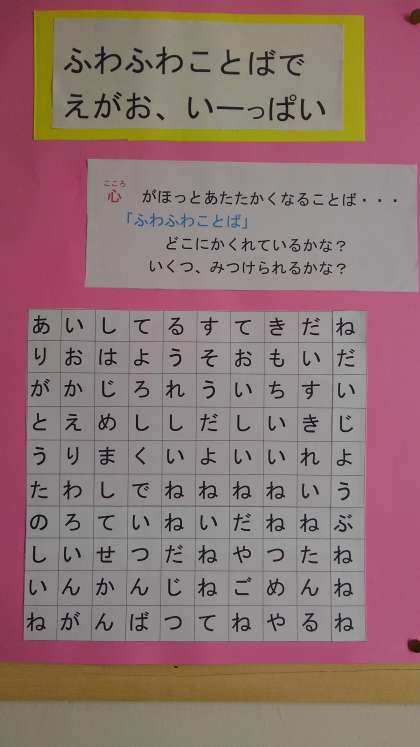 ふわふわことばで
えがお、いーっぱい
こころ
心 がほっとあたたかくなることば・・・
「ふわふわことば」
どこにかくれているかな？
いくつ、みつけられるかな？
あいしてるすてきだね
りおはようそおもいだ
がかじろれういちすい
とえめししだしいきじ
うりまくいよいいれよ
たわしでねねねねいう
のろていねいだねねぶ
しいせつだねやつたね
いんかんじねごめんね
ねがんばつてねやるね